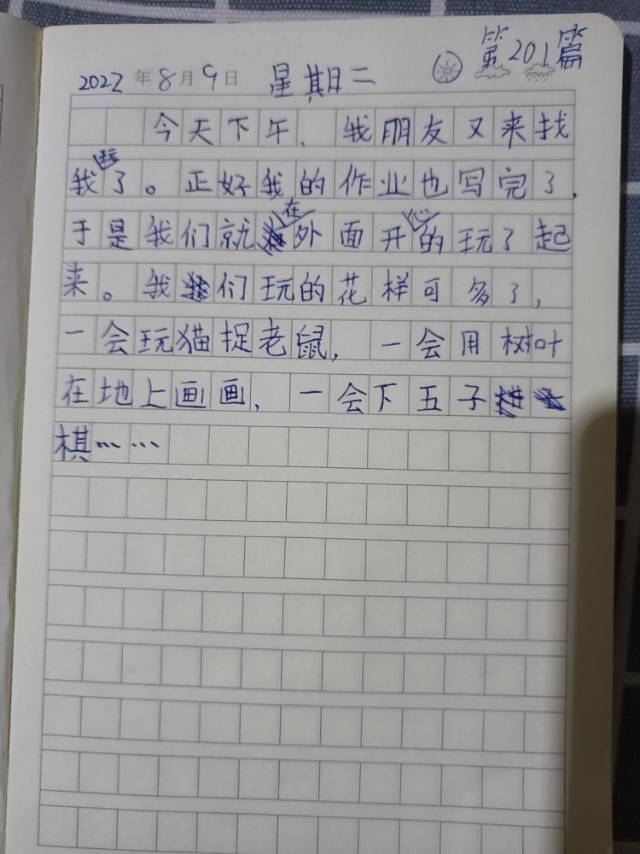 第201篇
2022年8月9日 星期二
今天下午，我朋友又来找
我玩了。正好我的作业也写完了，
于是我们就在外面开心的玩了起
来。我们玩的花样可多了，
一会玩猫捉老鼠，一会用树叶
在地上画画，一会下五子
棋……